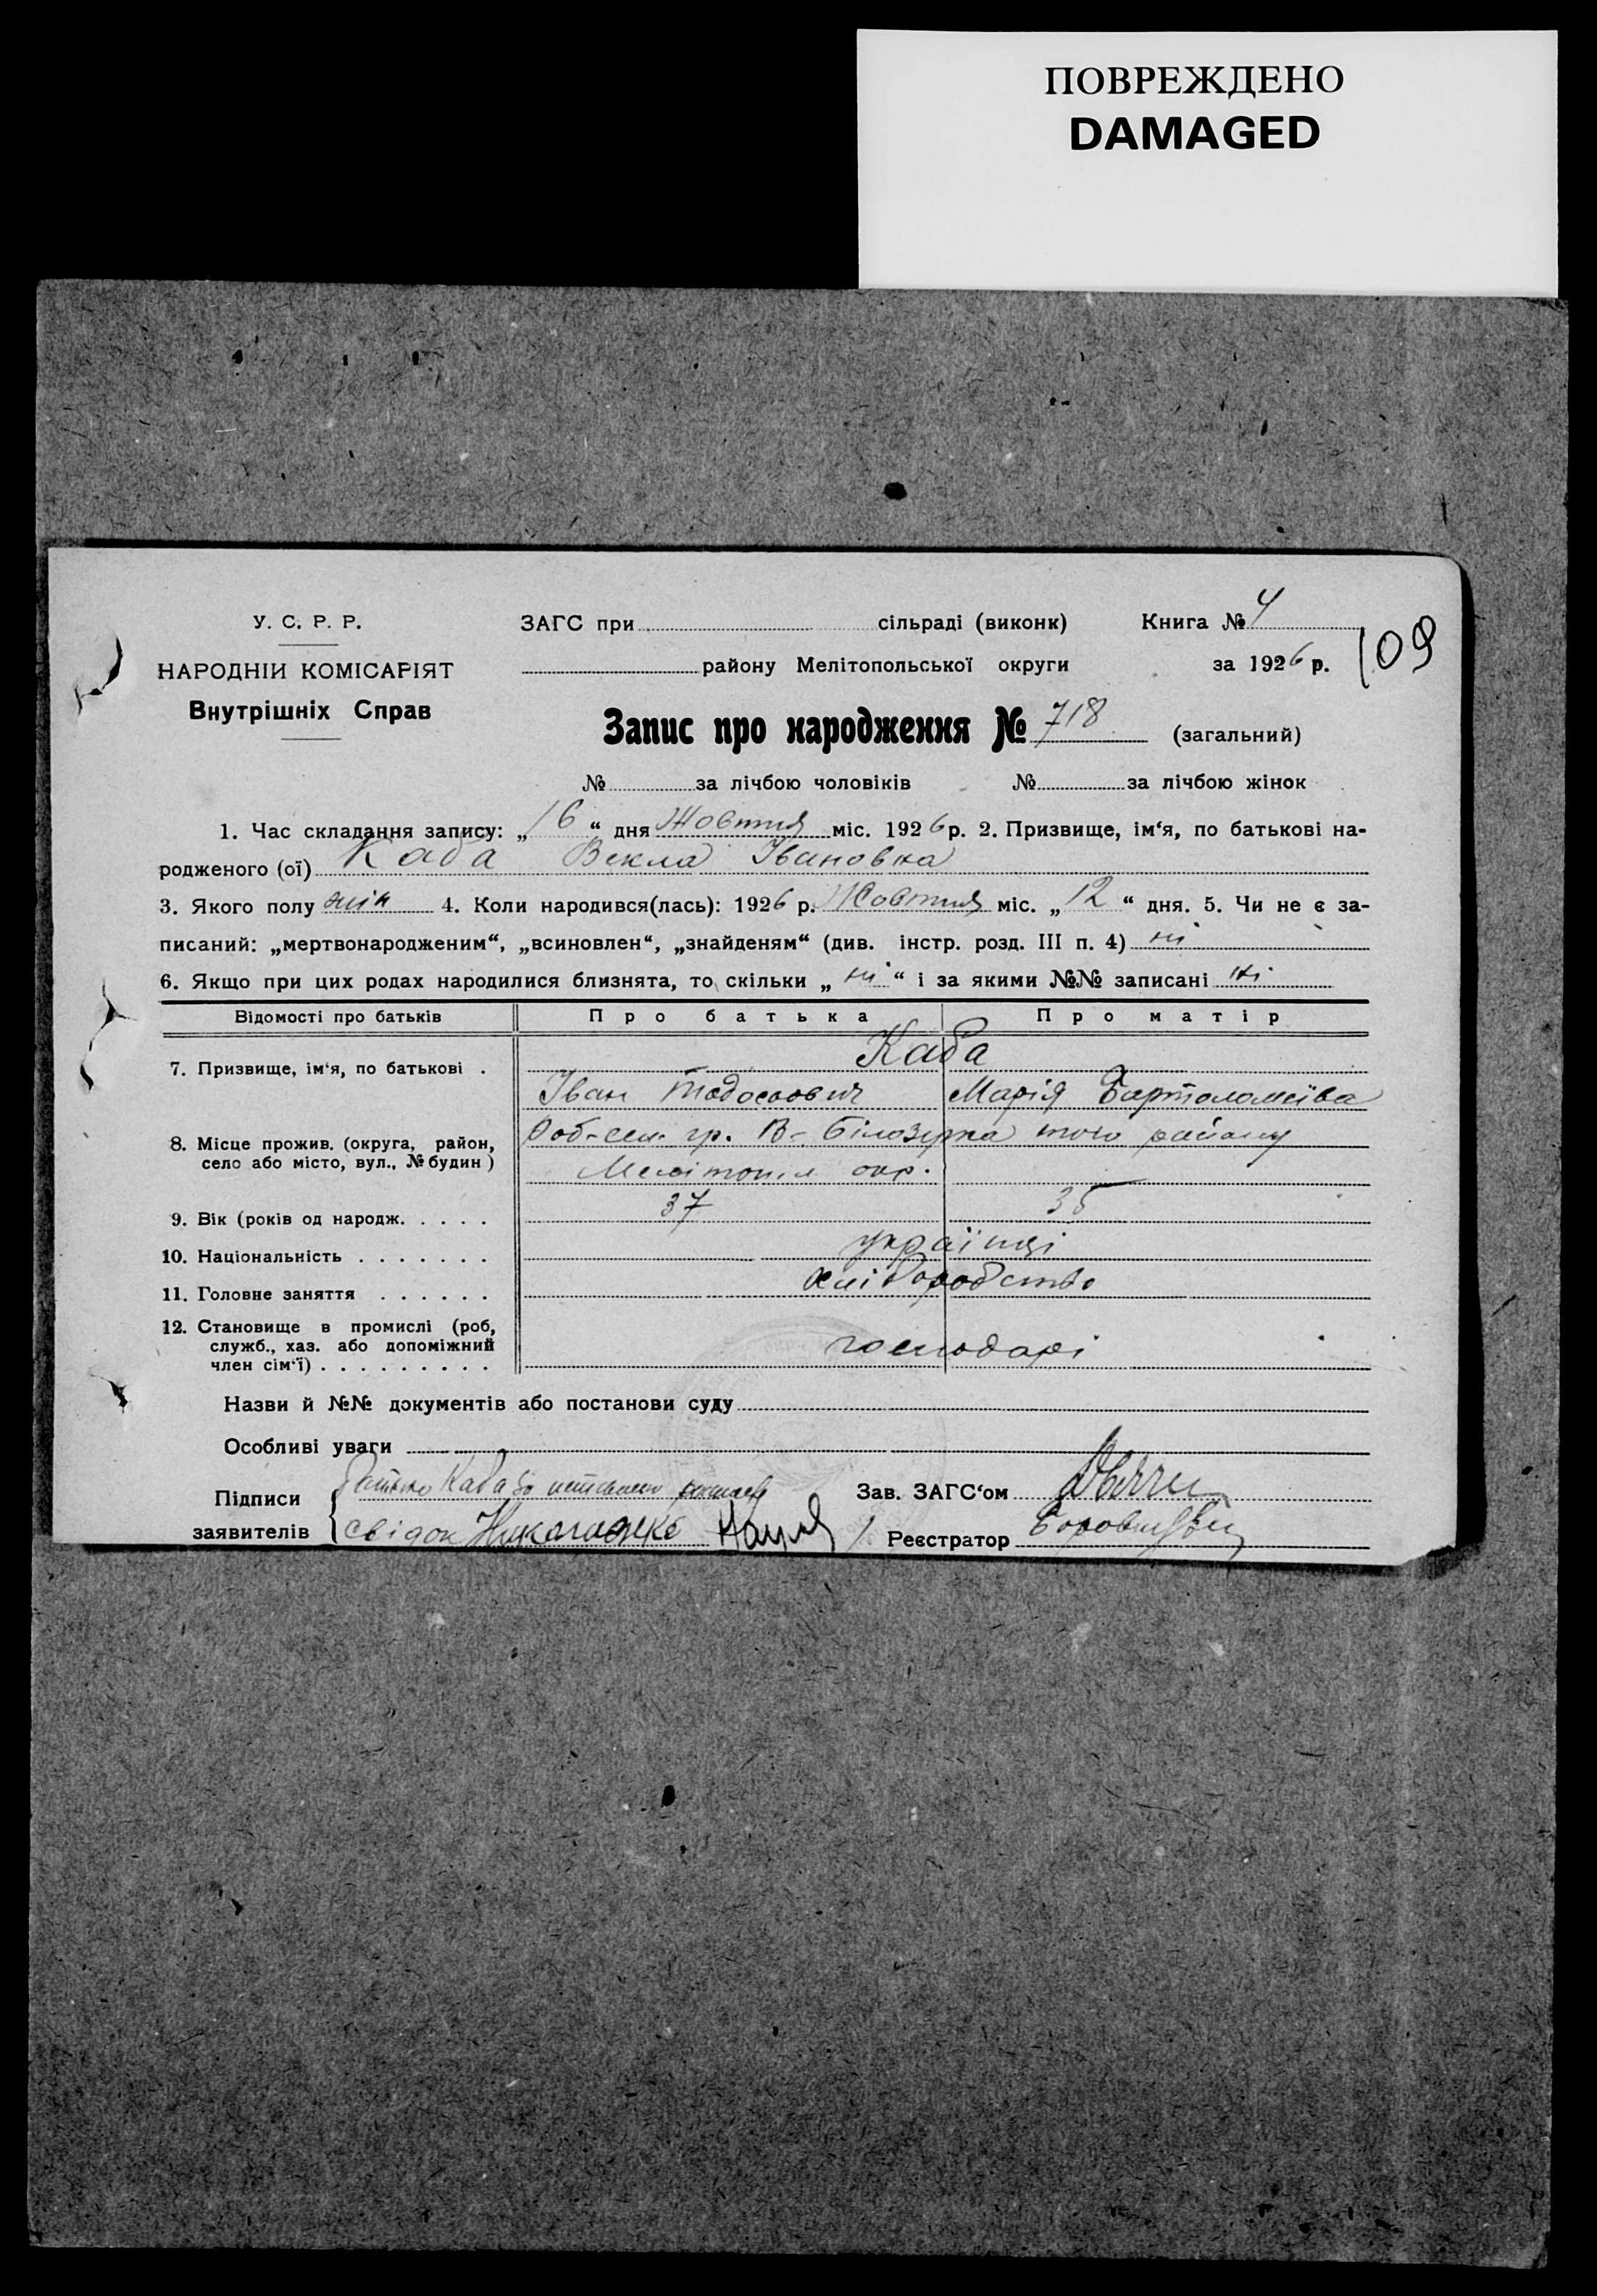 ПОВРЕЖДЕНО
DAMAGED
У. С. Р. Р.
НАРОДНІЙ КОМІСАРІЯТ
Внутрішніх Справ
ЗАГС при сільраді (виконк)
району Мелітопольської округи
Книга № 4
за 1926 р.
109
Запис про народження № 718 (загальний)
№ за лічбою чоловіків № за лічбою жінок
1. Час складання запису: „16“ дня Жовтня міс. 1926 р. 2. Призвище, ім‘я, по батькові на-
родженого (ої) Каба Векла Івановка
3. Якого полу жін 4. Коли народився(лась): 1926 р. Жовтня міс. „12“ дня. 5. Чи не є за-
писаний: „мертвонародженим“, „всиновлен“, „знайденям“ (див. інстр. розд. III п. 4) ні
6. Якщо при цих родах народилися близнята, то скільки „ні“ і за якими №№ записані ні
Відомості про батьків Про батька Про матір
7. Призвище, ім‘я, по батькові . Каба
Іван Тодосович Марія Бартоломеївa
8. Місце прожив. (округа, район, село або місто, вул., № будин) гр. В-Білозерка того району
окр.
9. Вік (років од народж. . . . . 37 35
10. Національність . . . . . . . українці
11. Головне заняття . . . . . . хліборобство
12. Становище в промислі (роб, служб., хаз. або допоміжний член сім‘ї) . . . . . . . . . господарі
Назви й №№ документів або постанови суду
Особливі уваги
Підписи заявителів
Батько Каба
свідок
Зав. ЗАГС‘ом
Реєстратор